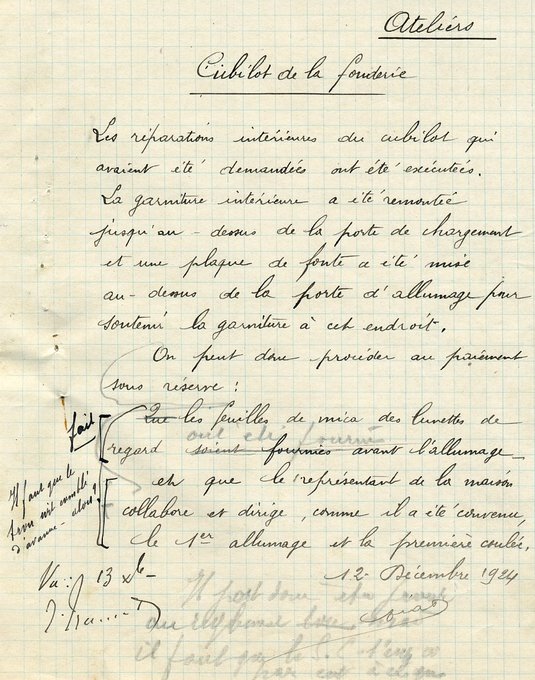 Ateliérs
Cubilot de la fonderie
Les réparations intérieures du cubilot qui
avaient été demandées ont été exécutées.
La garniture intérieure a été remontée
jusqu'au-dessus de la porte de chargement
et une plaque de fonte a été mise
au-dessus de la porte d'allumage pour
soutenir la garniture à cet endroit.
On peut donc procéder au paiement
sous réserve :
fait
Que les feuilles de mica des lunettes de
ont été fournies
regard soient fournies avant l'allumage
Il faut que le
four soit
d'avance - alors ?
et que le représentant de la maison
collabore et dirige, comme il a été convenu,
le 1er allumage et la première coulée.
Vu : 13 Xbre
12 Décembre 1924
Il faut donc
au
il faut que le